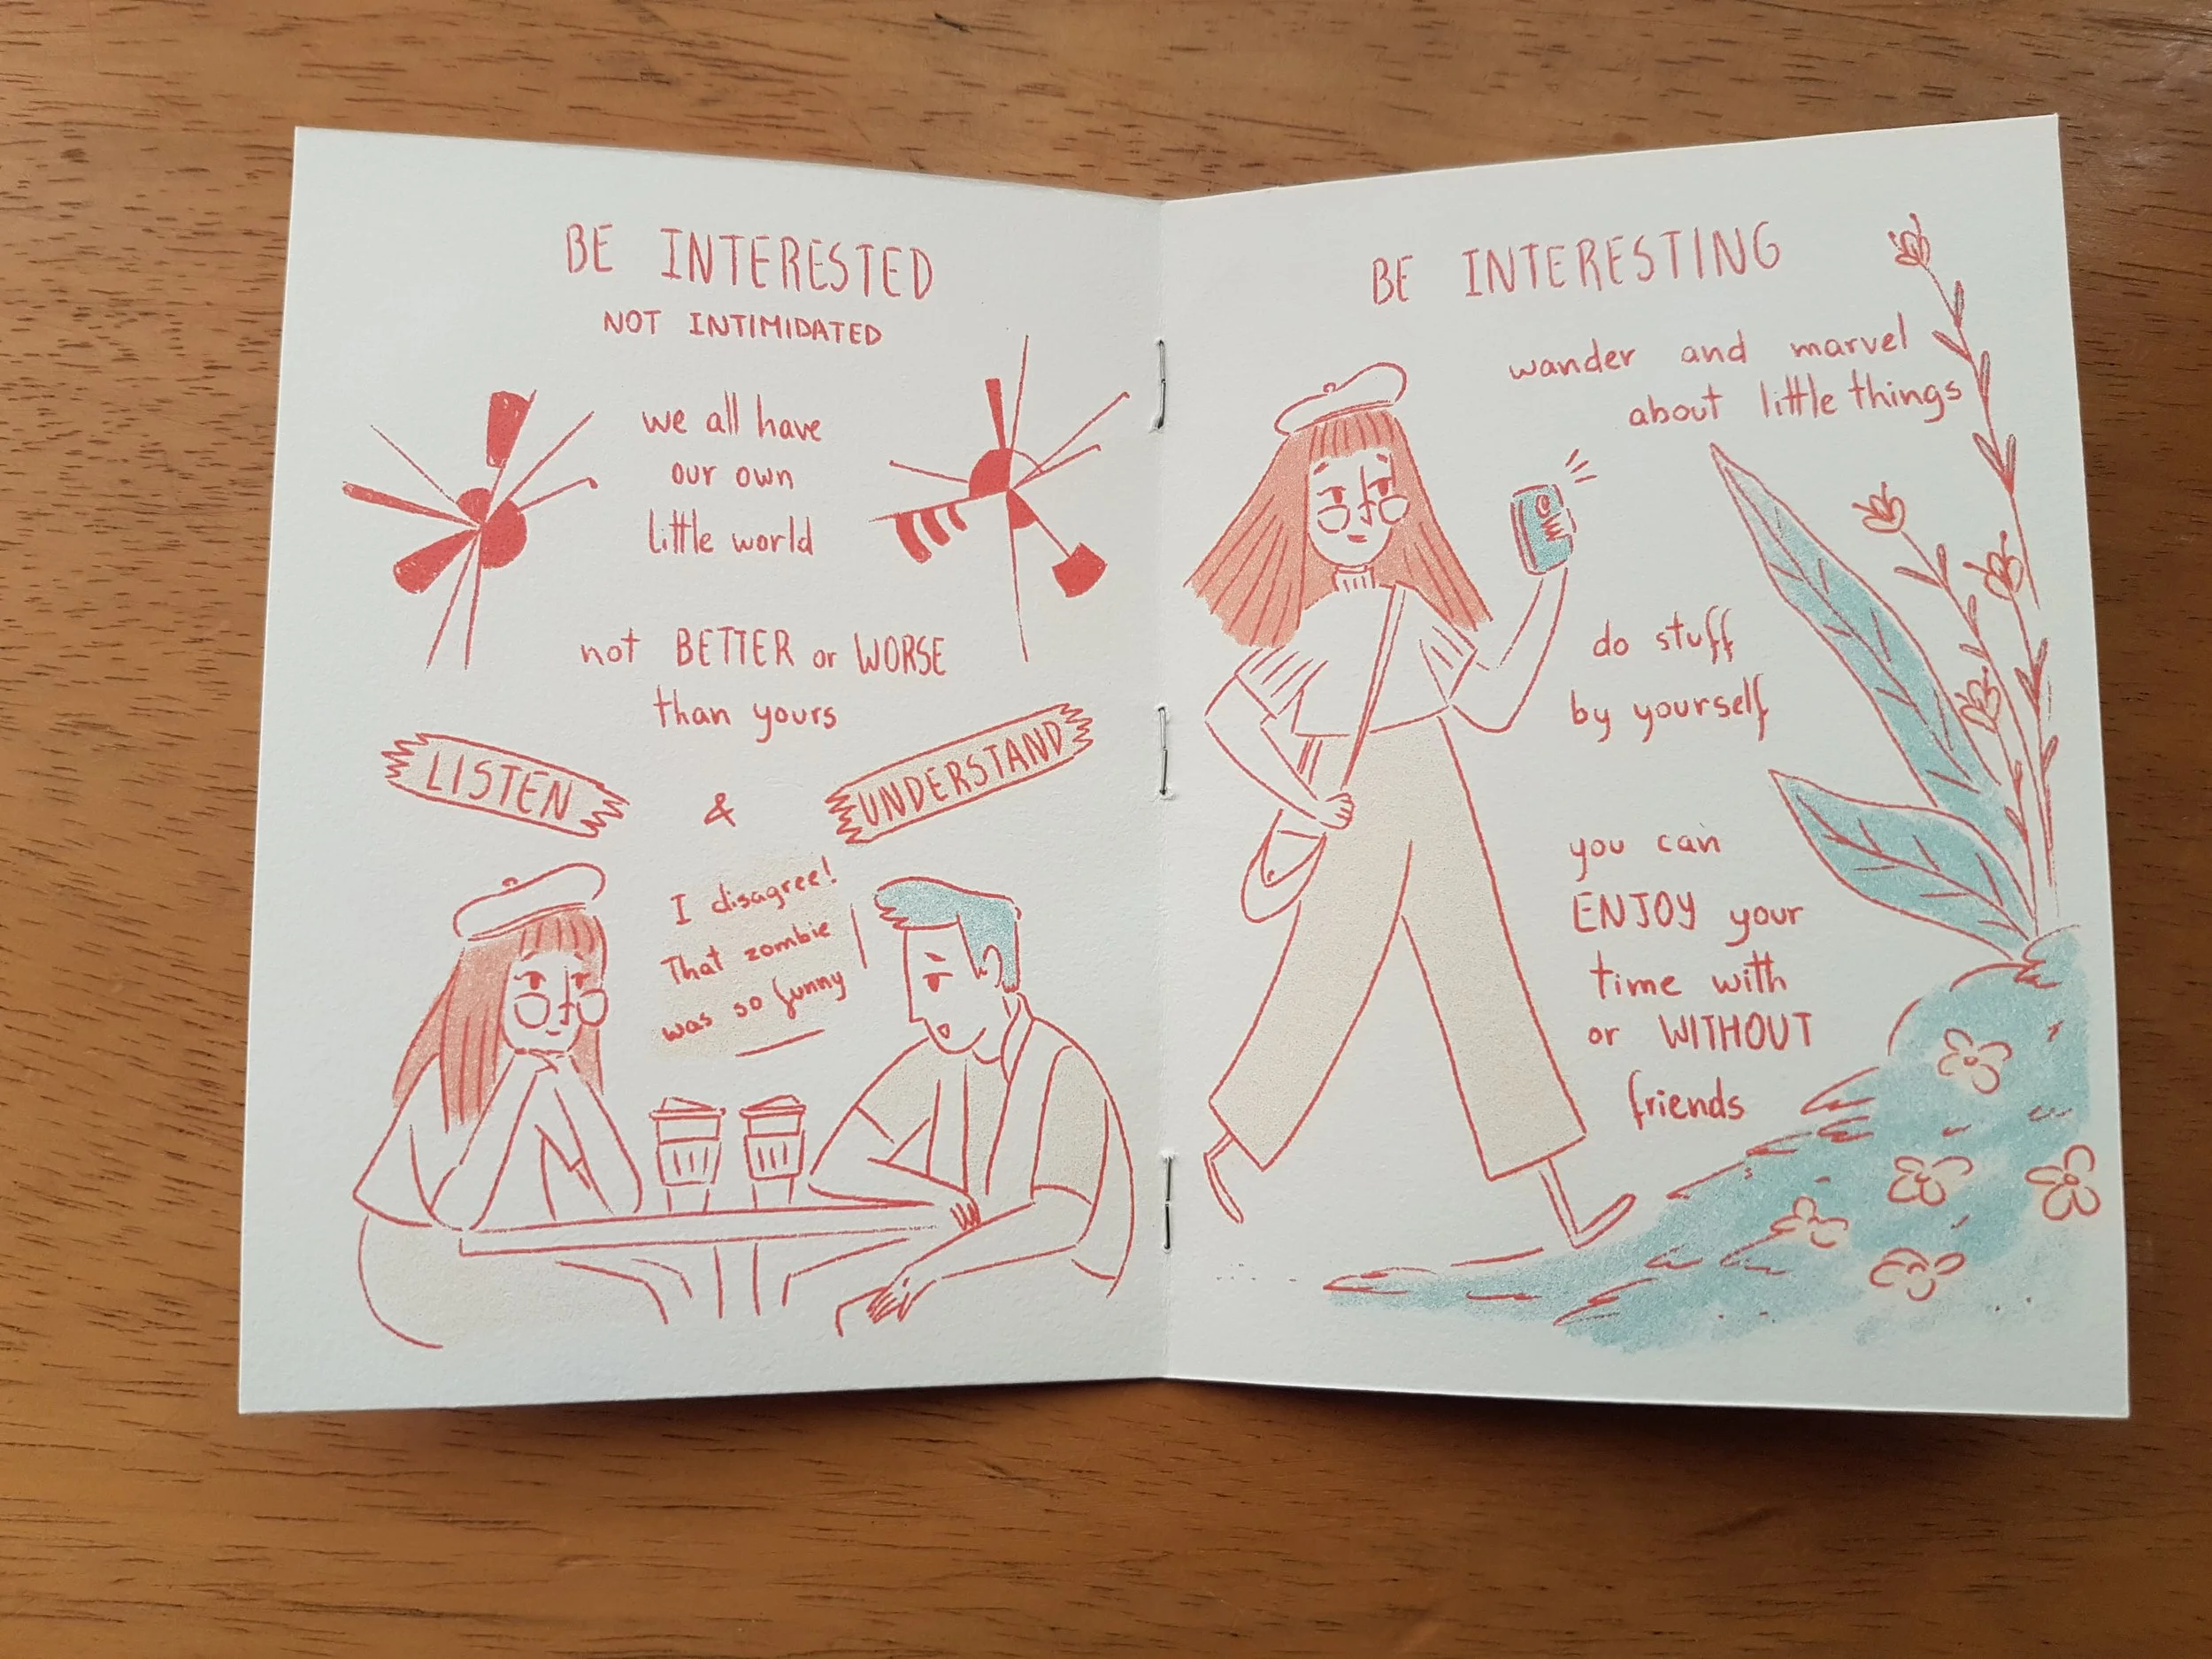 BE INTERESTED
NOT INTIMIDATED
we all have
our own
little world
not BETTER or WORSE
than yours
LISTEN
&
UNDERSTAND
I disagree!
That zombie
was so funny
BE INTERESTING
wander and marvel
about little things
do stuff
by yourself
you can
ENJOY your
time with
or WITHOUT
friends